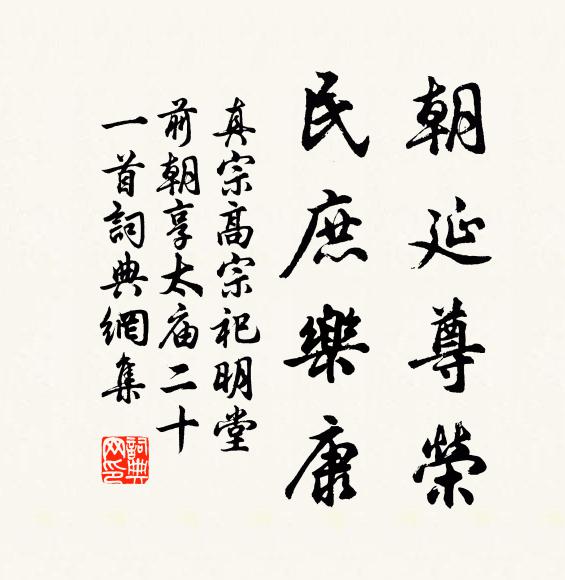 朝延尊榮
民庶樂康
真宗高宗祀明堂
前朝享太廟二十
一首詞典網集
詞典
網印